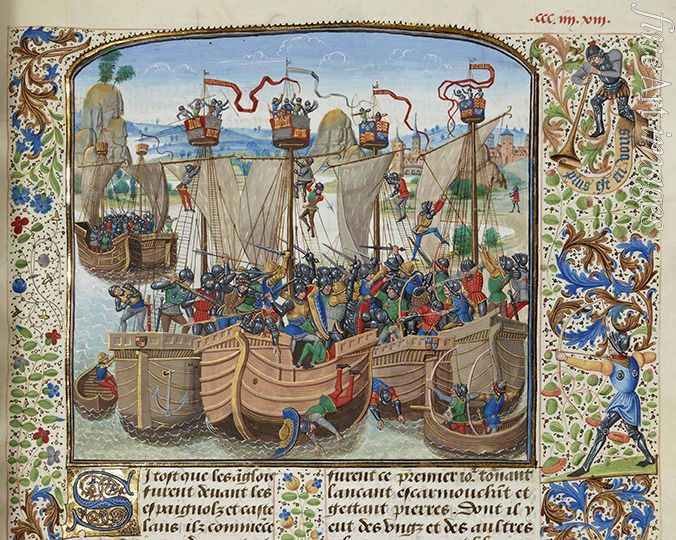 CCC. IIII. XVIII.
plus est en vous
fineArtImages
Si tost que les anglois
furent devant les
espaignolz et caste
lans ilz commēcē
furent ce premier io². tōnant
lancant escarmouchāt et
gettant pierres. Dont il y
eut des vngz et des aultres